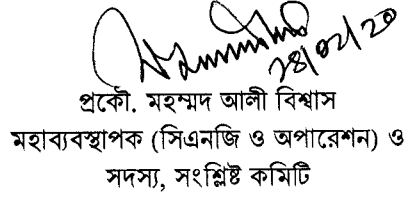 ২৪/০২/২০
প্রকৌ. মহম্মদ আলী বিশ্বাস
মহাব্যবস্থাপক (সিএনজি ও অপারেশন) ও
সদস্য, সংশ্লিষ্ট কমিটি